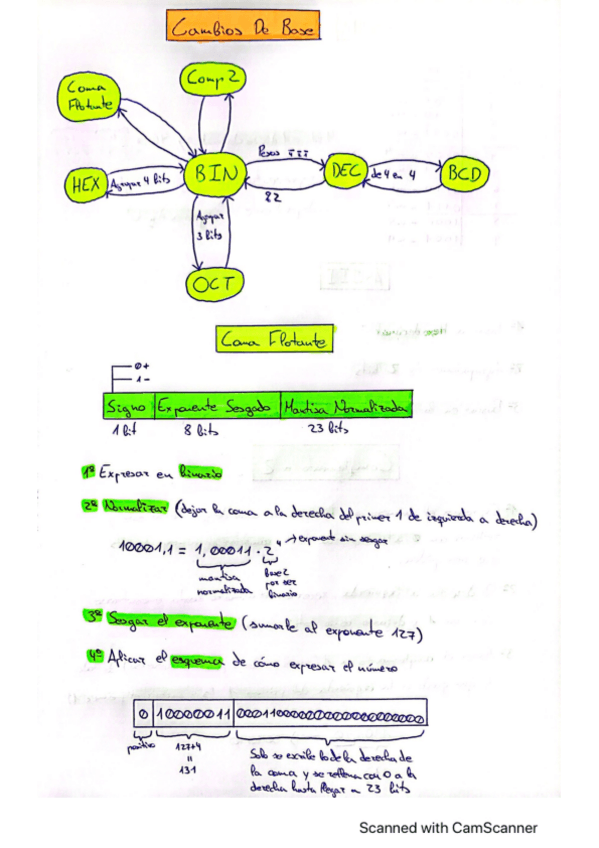 Cambios De Base
Coma
Flotante
Comp 2
HEX
Agrupar 4 bits
BIN
Pesos
DEC
de 4 en 4
BCD
Agrupar
3 bits
OCT
Coma Flotante
0 +
1 -
Signo Exponente Sesgado Mantisa Normalizada
1 bit 8 bits 23 bits
1º Expresar en binario
2º Normalizar (dejar la coma a la derecha del primer 1 de izquierda a derecha)
10001,1 = 1,00011 · 2⁴ → exponente sin sesgar
mantisa
normalizada
Base 2
por ser
binario
3º Sesgar el exponente (sumarle al exponente 127)
4º Aplicar el esquema de cómo expresar el número
0 10000011 00011000000000000000000
positivo
127+4
=
131
Solo se escribe lo de la derecha de
la coma y se rellena con 0 a la
derecha hasta llegar a 23 bits
Scanned with CamScanner